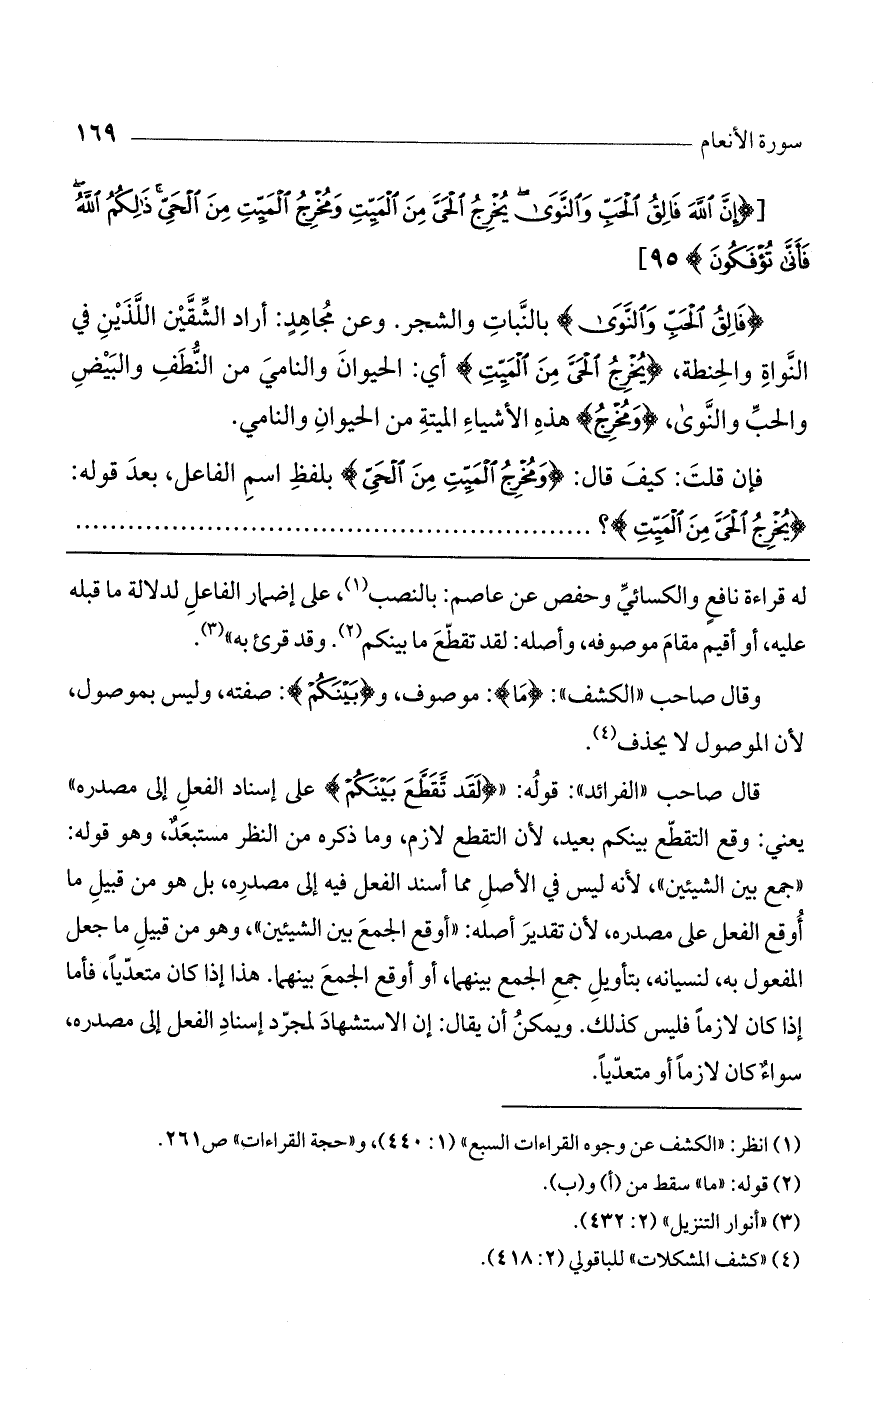 سورة الأنعام ١٦٩
[﴿إِنَّ ٱللَّهَ فَالِقُ ٱلْحَبِّ وَٱلنَّوَىٰ ۖ يُخْرِجُ ٱلْحَىَّ مِنَ ٱلْمَيِّتِ وَمُخْرِجُ ٱلْمَيِّتِ مِنَ ٱلْحَىِّ ۚ ذَٰلِكُمُ ٱللَّهُ ۖ
فَأَنَّىٰ تُؤْفَكُونَ﴾ ٩٥]
﴿فَالِقُ ٱلْحَبِّ وَٱلنَّوَىٰ﴾ بالنَّباتِ والشجر. وعن مُجاهِدٍ: أراد الشِّقَّيْن اللَّذَيْنِ في
النَّواةِ والحِنطة، ﴿يُخْرِجُ ٱلْحَىَّ مِنَ ٱلْمَيِّتِ﴾ أي: الحيوانَ والناميَ من النُّطَفِ والبَيْضِ
والحبِّ والنَّوىٰ، ﴿وَمُخْرِجُ﴾ هذهِ الأشياءِ الميتةِ من الحيوانِ والنامي.
فإن قلتَ: كيفَ قال: ﴿وَمُخْرِجُ ٱلْمَيِّتِ مِنَ ٱلْحَىِّ﴾ بلفظِ اسمِ الفاعل، بعدَ قوله:
﴿يُخْرِجُ ٱلْحَىَّ مِنَ ٱلْمَيِّتِ﴾؟ ..........................................................
له قراءة نافعٍ والكسائيِّ وحفص عن عاصم: بالنصب(١)، على إضمار الفاعلِ لدلالة ما قبله
عليه، أو أقيم مقامَ موصوفه، وأصله: لقد تقطّعَ ما بينكم(٢). وقد قرئ به»(٣).
وقال صاحب «الكشف»: ﴿مَا﴾: موصوف، و﴿بَيْنَكُمْ﴾: صفته، وليس بموصول،
لأن الموصول لا يحذف(٤).
قال صاحب «الفرائد»: قولُه: «﴿لَقَد تَّقَطَّعَ بَيْنَكُمْ﴾ على إسناد الفعلِ إلى مصدره»
يعني: وقع التقطّع بينكم بعيد، لأن التقطع لازم، وما ذكره من النظر مستبعَدٌ، وهو قوله:
«جمع بين الشيئين»، لأنه ليس في الأصلِ مما أسند الفعل فيه إلى مصدرِه، بل هو من قبيلِ ما
أُوقع الفعل على مصدره، لأن تقديرَ أصله: «أوقع الجمعَ بين الشيئين»، وهو من قبيلِ ما جعل
المفعول به، لنسيانه، بتأويلِ جمعِ الجمع بينهما، أو أوقع الجمعَ بينهما. هذا إذا كان متعدّياً، فأما
إذا كان لازماً فليس كذلك. ويمكنُ أن يقال: إن الاستشهادَ لمجرّد إسنادِ الفعل إلى مصدره،
سواءٌ كان لازماً أو متعدّياً.
(١) انظر: «الكشف عن وجوه القراءات السبع» (١: ٤٤٠)، و«حجة القراءات» ص٢٦١.
(٢) قوله: «ما» سقط من (أ) و(ب).
(٣) «أنوار التنزيل» (٢: ٤٣٢).
(٤) «كشف المشكلات» للباقولي (٢: ٤١٨).